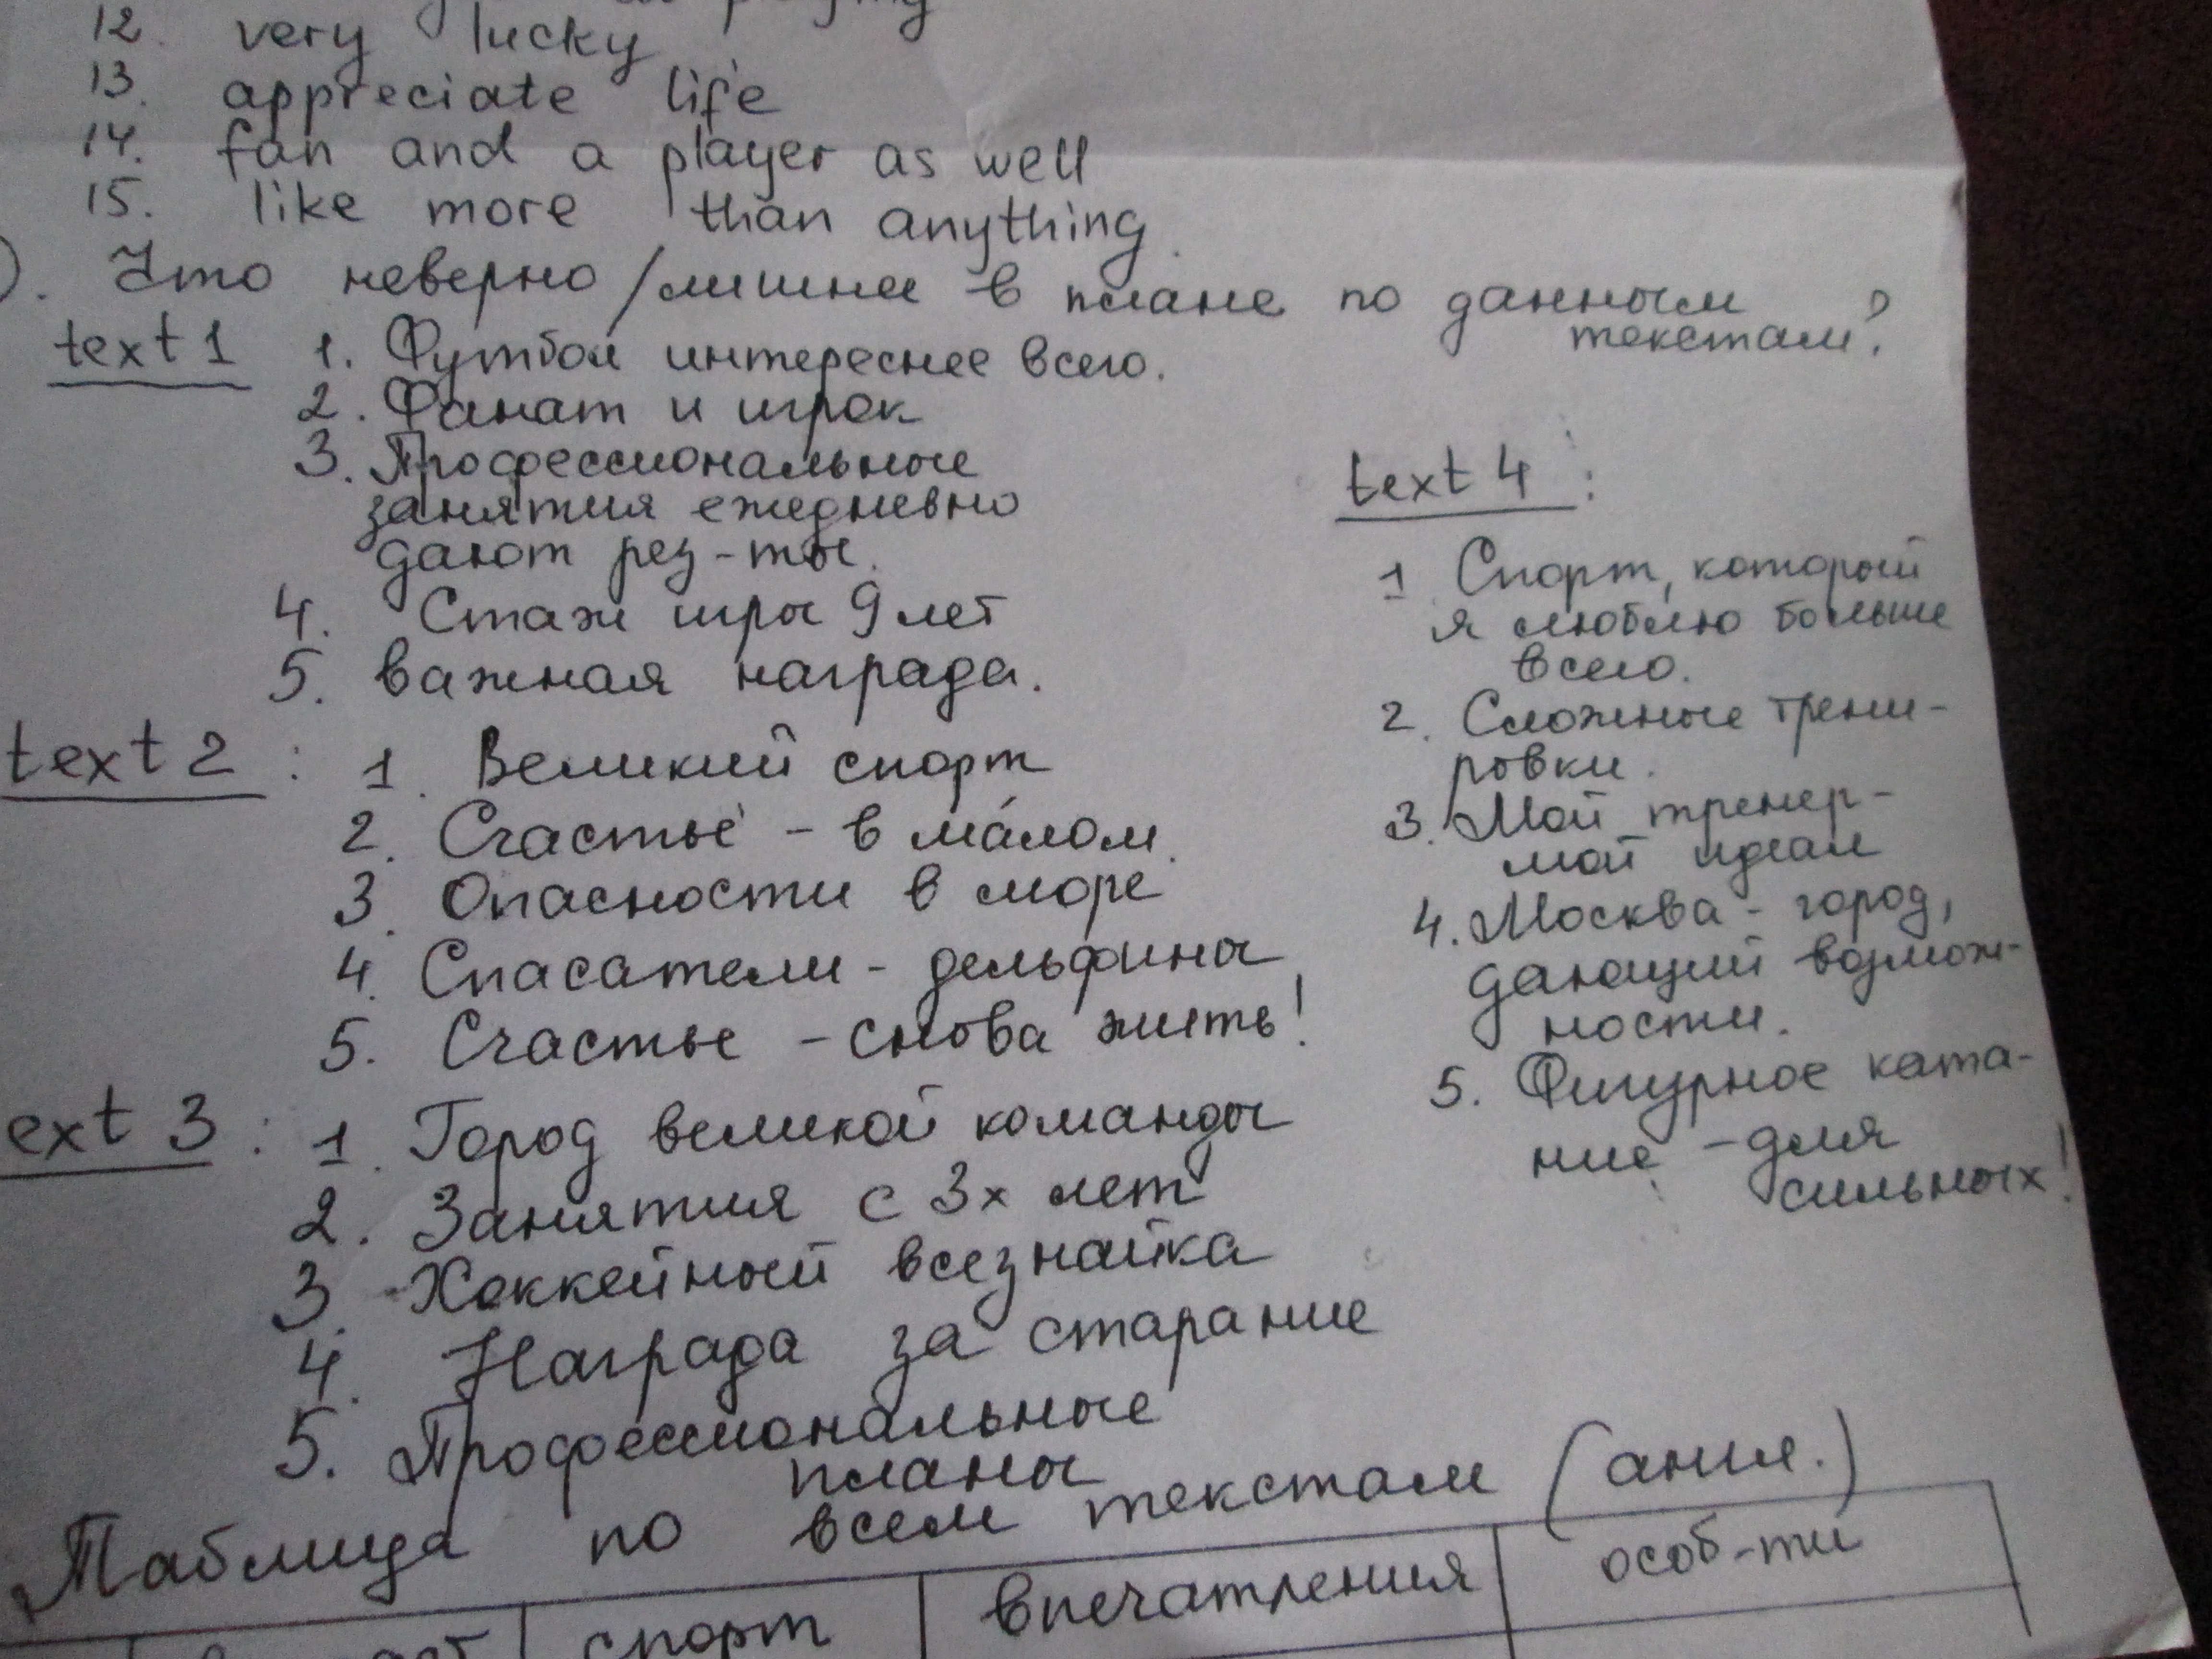 12. very lucky
13. appreciate life
14. fan and a player as well
15. like more than anything.
). Что неверно/лишнее в плане по данным
текстам?
text 1 1. Футбол интереснее всего.
2. Фанат и игрок
3. Профессиональные
занятия ежедневно
дают рез-ты.
4. Стаж игры 9 лет
5. важная награда.
text 2 : 1. Великий спорт
2. Счастье - в ма́лом.
3. Опасности в море
4. Спасатели - дельфины
5. Счастье - снова жить!
ext 3 : 1. Город великой команды
2. Занятия с 3х лет
3. Хоккейный всезнайка
4. Награда за старание
5. Профессиональные
планы
text 4 :
1 Спорт, который
я люблю больше
всего.
2. Сложные трени-
ровки.
3. Мой тренер -
мой идеал
4. Москва - город,
дающий возмож-
ности.
5. Фигурное ката-
ние - для
сильных!
Таблица по всем текстам (англ.)
спорт впечатления особ-ти